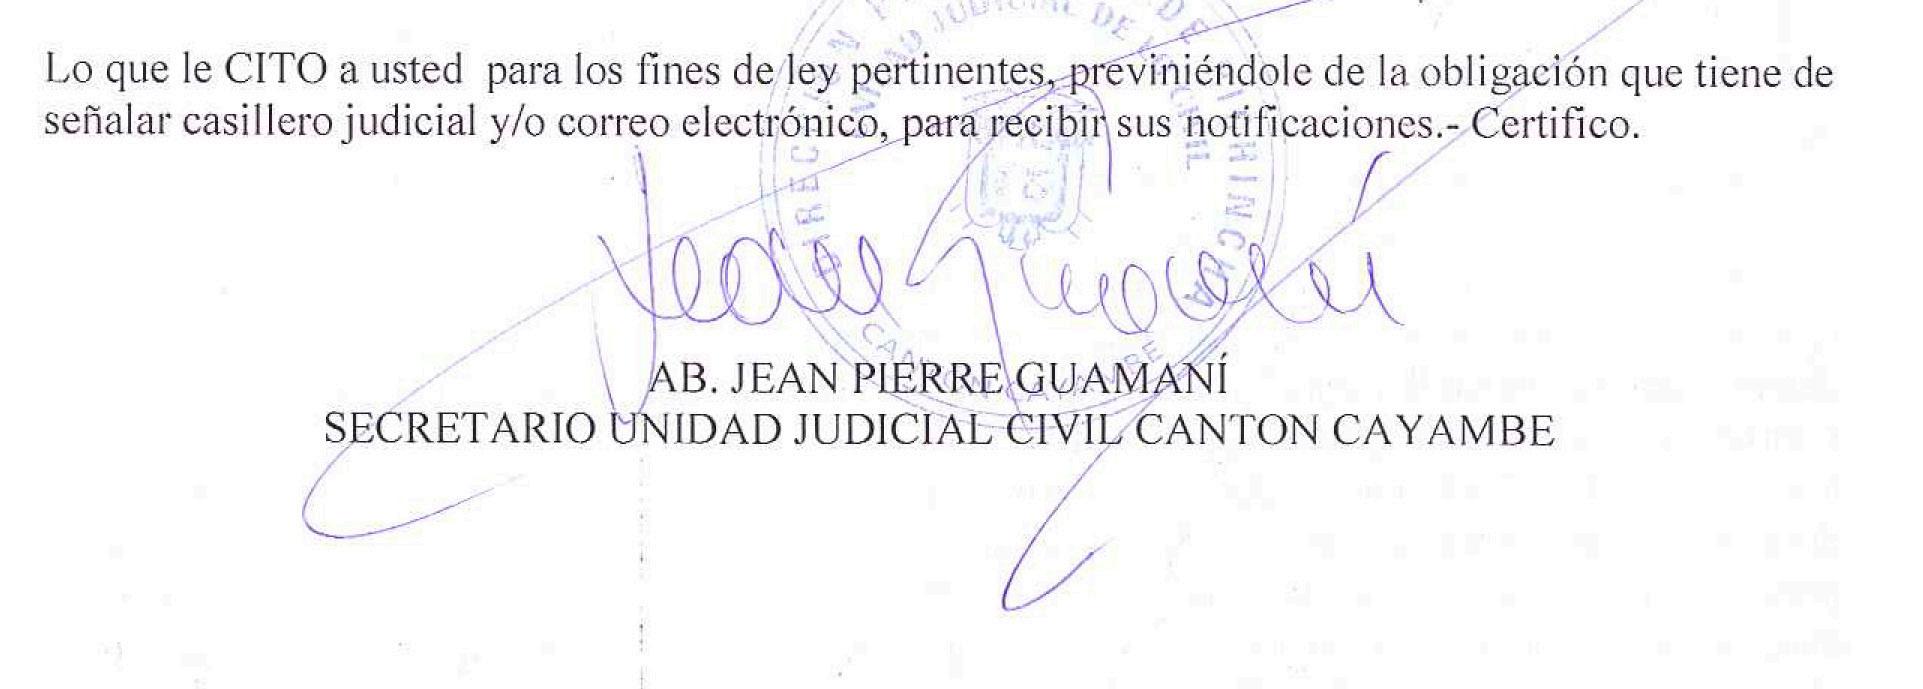 Lo que le CITO a usted para los fines de ley pertinentes, previniéndole de la obligación que tiene de
señalar casillero judicial y/o correo electrónico, para recibir sus notificaciones.- Certifico.
JUDICIAL DE
PICHINCHA
CANTON CAYAMBE
AB. JEAN PIERRE GUAMANÍ
SECRETARIO UNIDAD JUDICIAL CIVIL CANTON CAYAMBE